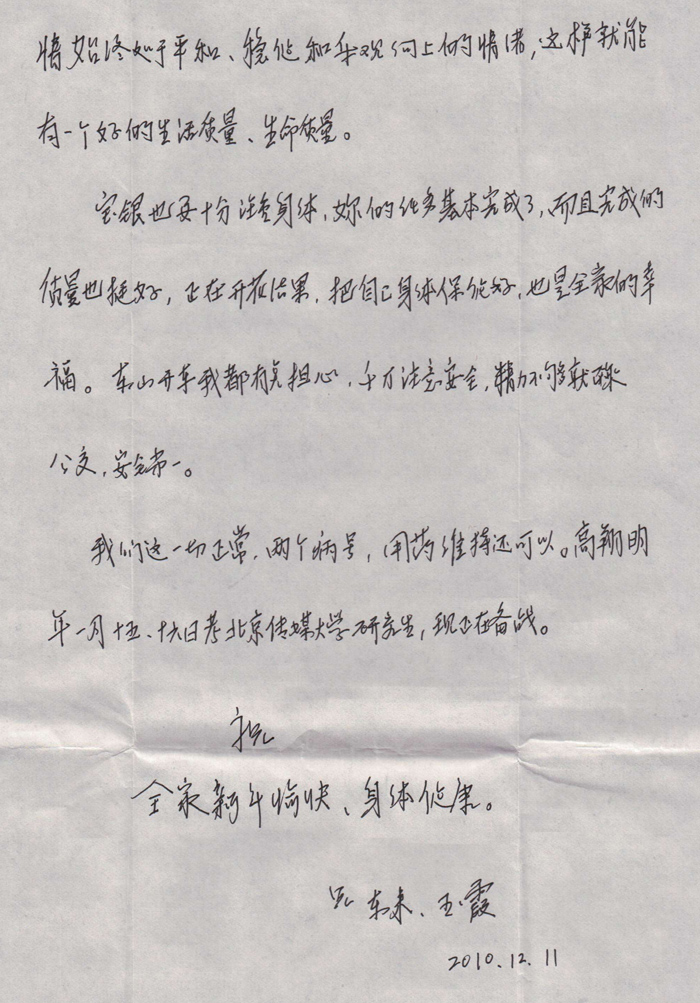 情始终处于平和、稳定和乐观向上的情绪,这样就能
有一个好的生活质量、生命质量。
宝银也要十分注意身体,妳的任务基本完成了,而且完成的
质量也挺好,正在开花结果,把自己身体保住好,也是全家的幸
福。东山开车我都有点担心,千万注意安全,精力不够就乘
公交,安全第一。
我们这一切正常,两个病号,用药维持还可以。高翔明
年一月十五、十六日考北京传媒大学研究生,现正在备战。
祝
全家新年愉快、身体健康。
兄 东来、玉霞
2010.12.11